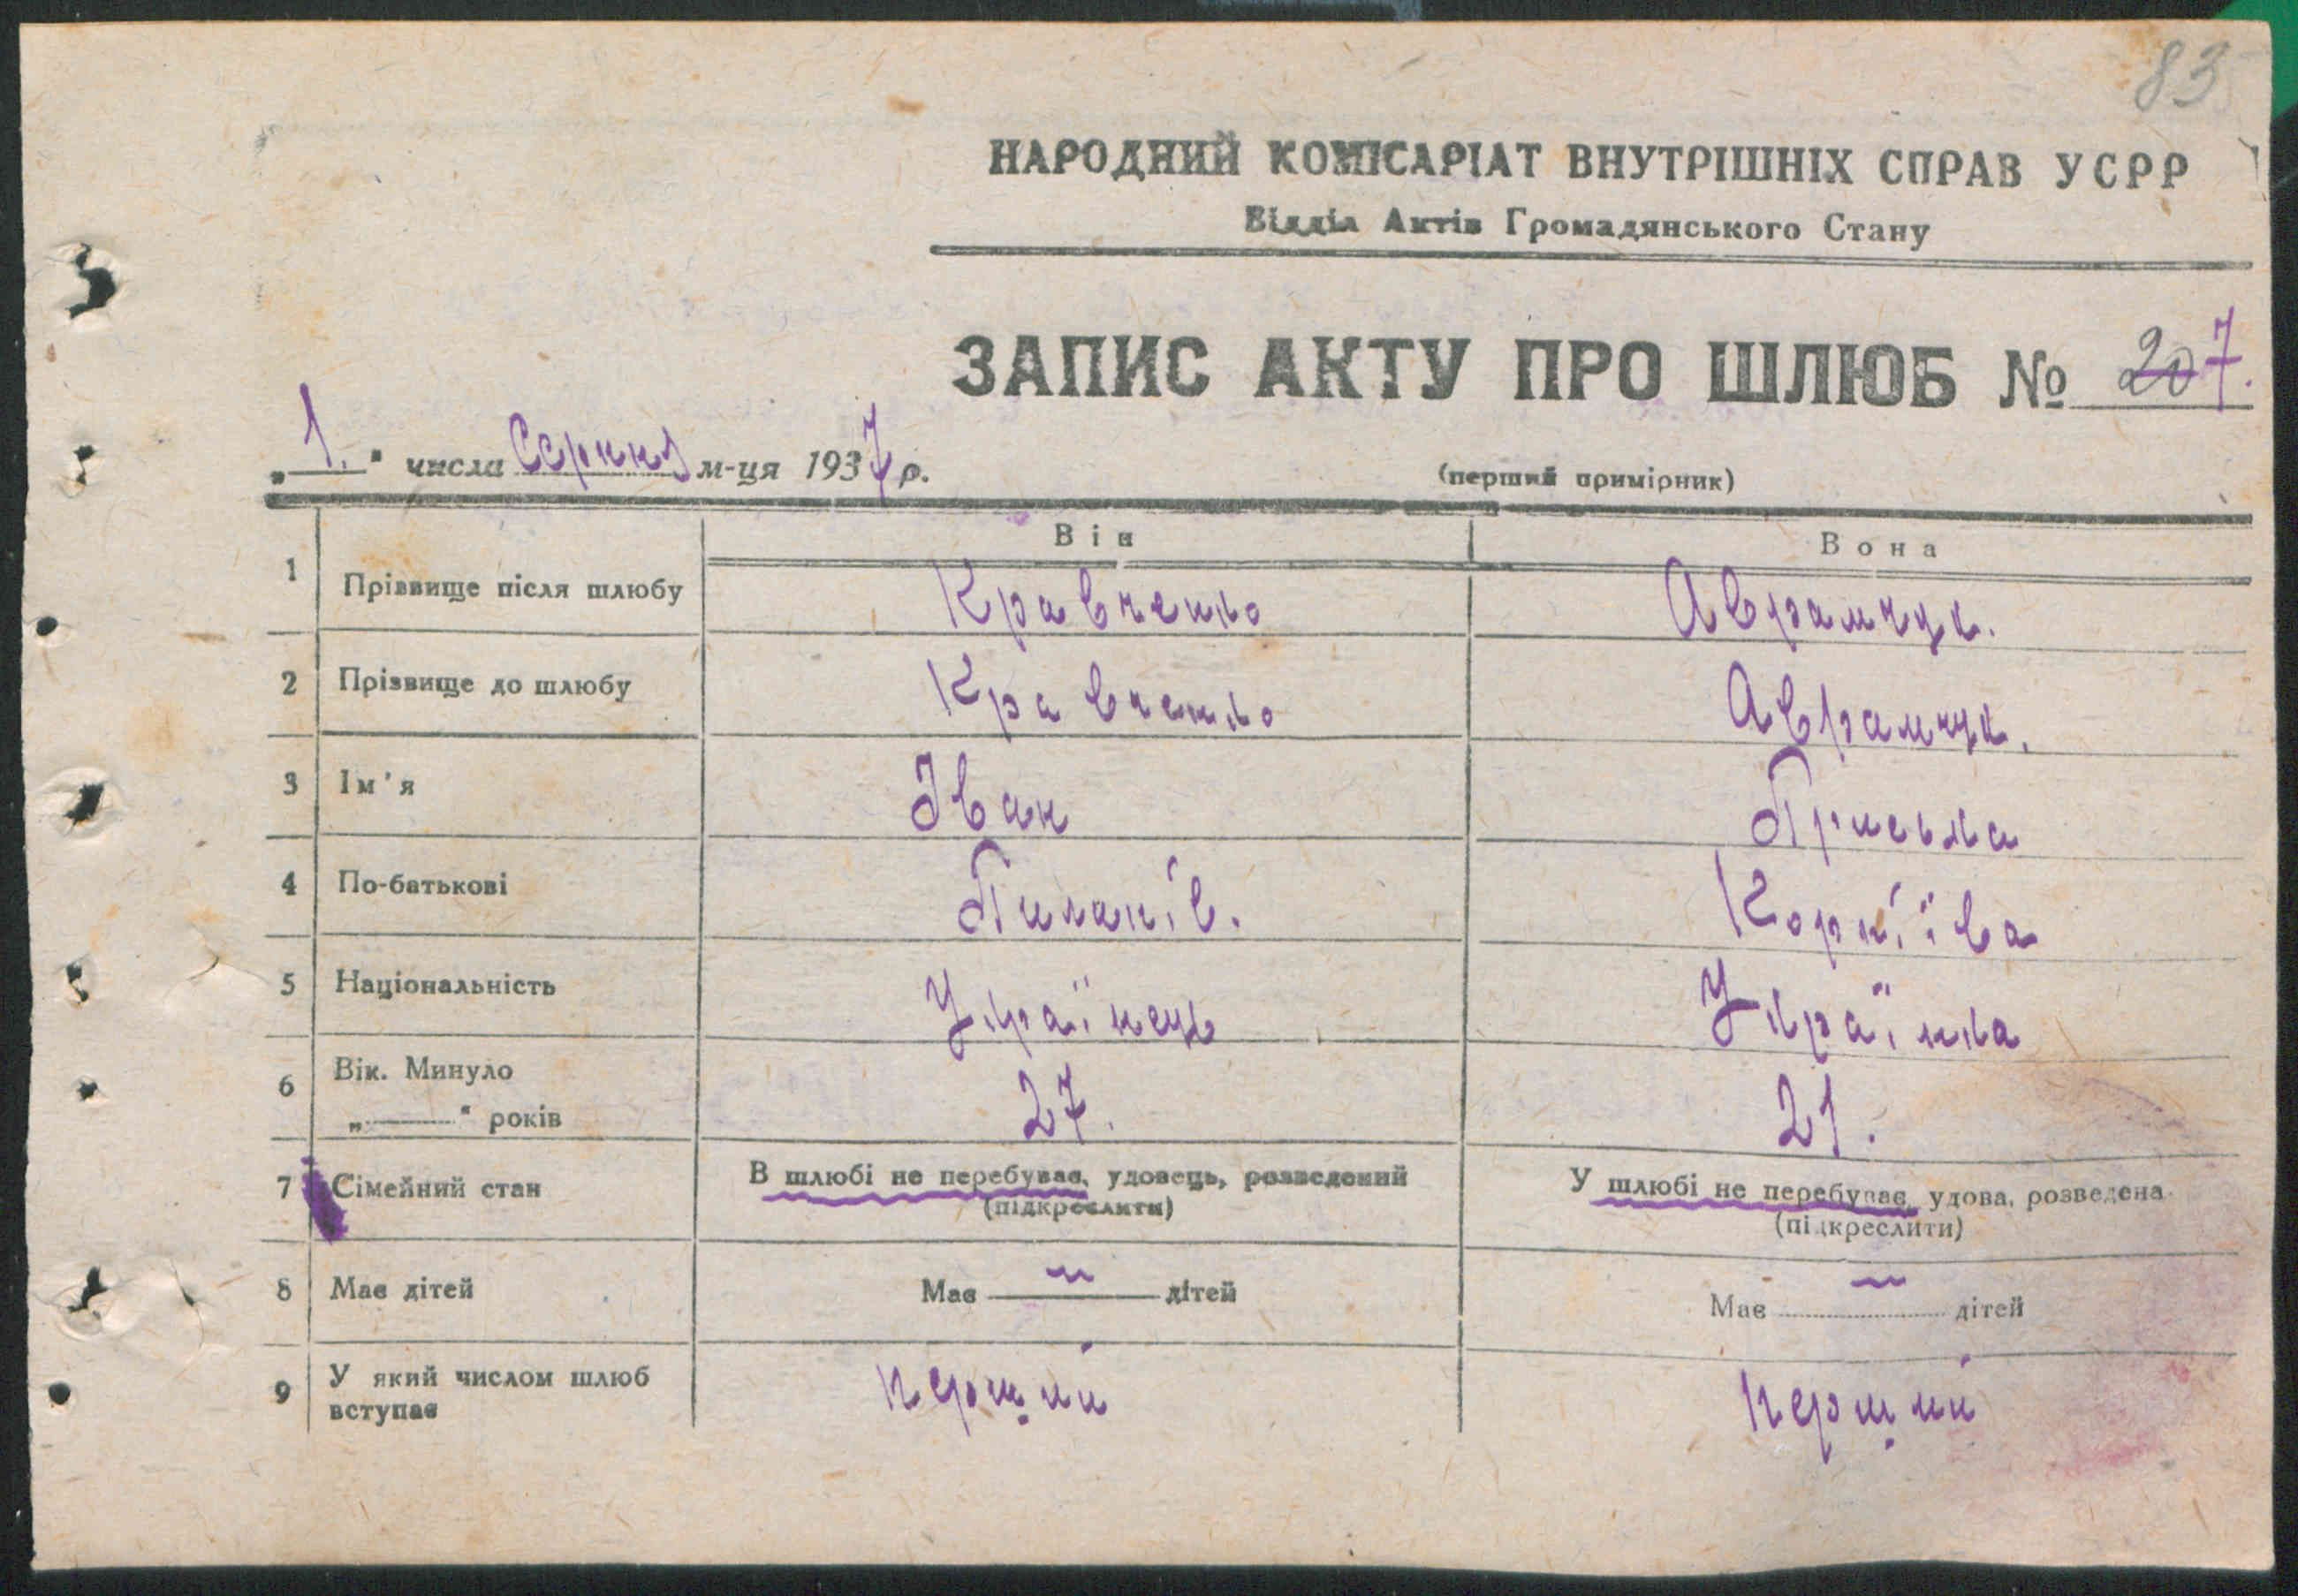 83
НАРОДНИЙ КОМІСАРІАТ ВНУТРІШНІХ СПРАВ УСРР
Відділ Актів Громадянського Стану
ЗАПИС АКТУ ПРО ШЛЮБ № 20 7.
„1." числа Серпня м-ця 1937 р.
(перший примірник)
Він Вона
1 Прізвище після шлюбу Кравченко Аврамчук.
2 Прізвище до шлюбу Кравченко Аврамчук.
3 Ім'я Іван Приська
4 По-батькові Пилипів. Корніїва
5 Національність Українець Українка
6 Вік. Минуло
„ " років 27. 21.
7 Сімейний стан В шлюбі не перебуває, удовець, розведений У шлюбі не перебуває, удова, розведена
(підкреслити) (підкреслити)
8 Має дітей Має — дітей Має — дітей
9 У який числом шлюб
вступає перший перший